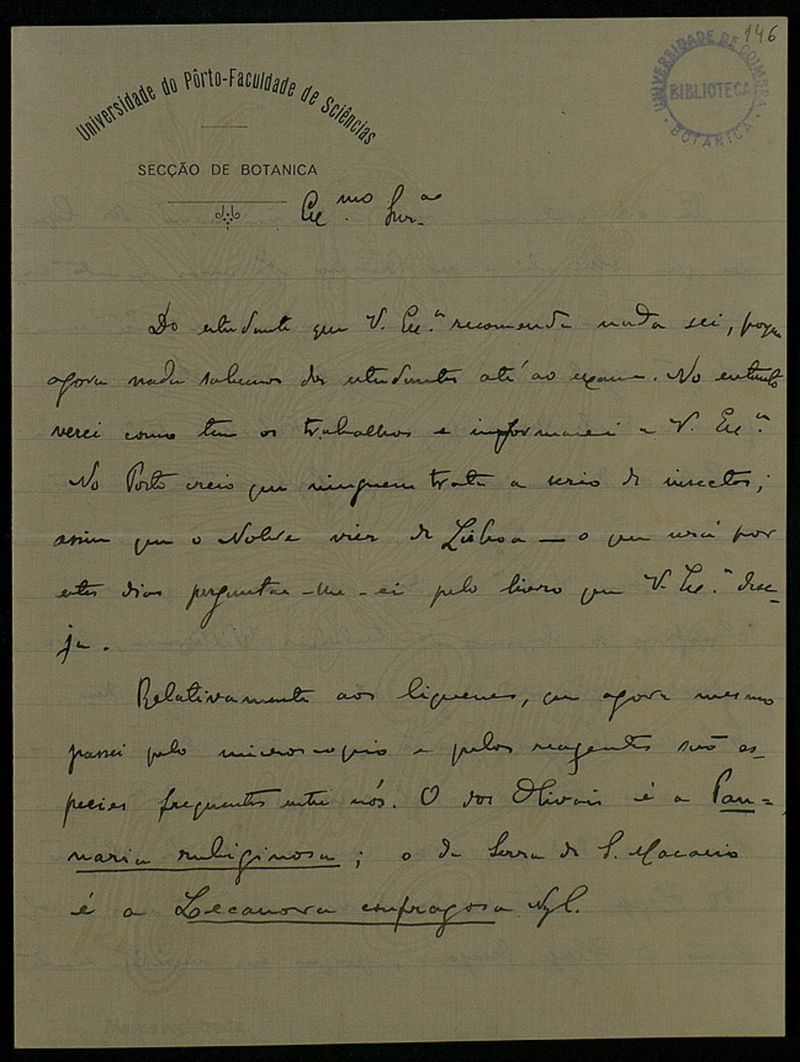 146
UNIVERSIDADE DE COIMBRA
BIBLIOTECA
BOTANICA
Universidade do Pôrto-Faculdade de Sciências
SECÇÃO DE BOTANICA
Ex.mo Snr.
Do estudante que V. Ex.ª recomenda nada sei, porque
agora nada sabemos dos estudantes até ao exame. No entanto
verei como tem os trabalhos e informarei a V. Ex.ª
No Porto creio que ninguem trata a serio de insectos;
assim que o Nobre vier de Lisboa — o que será por
estes dias perguntar-lhe-ei pelo livro que V. Ex.ª dese-
ja.
Relativamente aos liquenes, que agora mesmo
passei pelo microscopio e pelos reagentes são es-
pecies frequentes entre nós. O dos Olivais é a Pan-
naria rubiginosa; o da Serra de S. Macario
é a Lecanora confragosa Nyl.